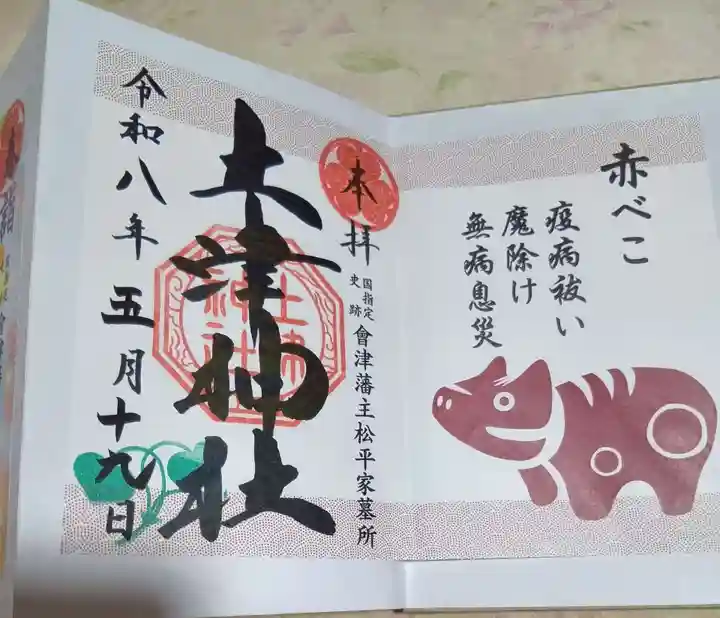 赤べこ
疫病祓い
魔除け
無病息災
奉拝
国指定
史跡
會津藩主松平家墓所
土津神社
土津
神社
令和八年五月十九日